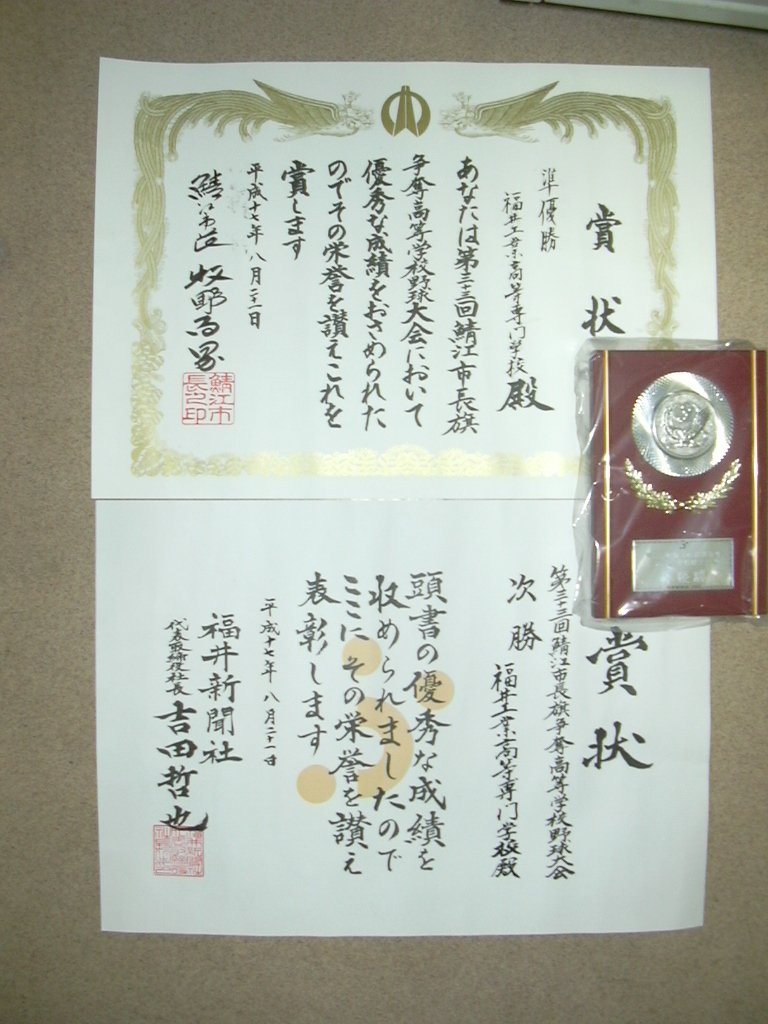 賞状
準優勝
福井工業高等専門学校殿
あなたは第三十三回鯖江市長旗
争奪高等学校野球大会において
優秀な成績をおさめられた
のでその栄誉を讃えこれを
賞します
平成十七年八月二十一日
鯖江市長 牧野百男
鯖江市
長之印
賞状
第三十三回鯖江市長旗争奪高等学校野球大会
次勝
福井工業高等専門学校殿
頭書の優秀な成績を
収められましたので
ここにその栄誉を讃え
表彰します
平成十七年八月二十一日
福井新聞社
代表取締役社長 吉田哲也